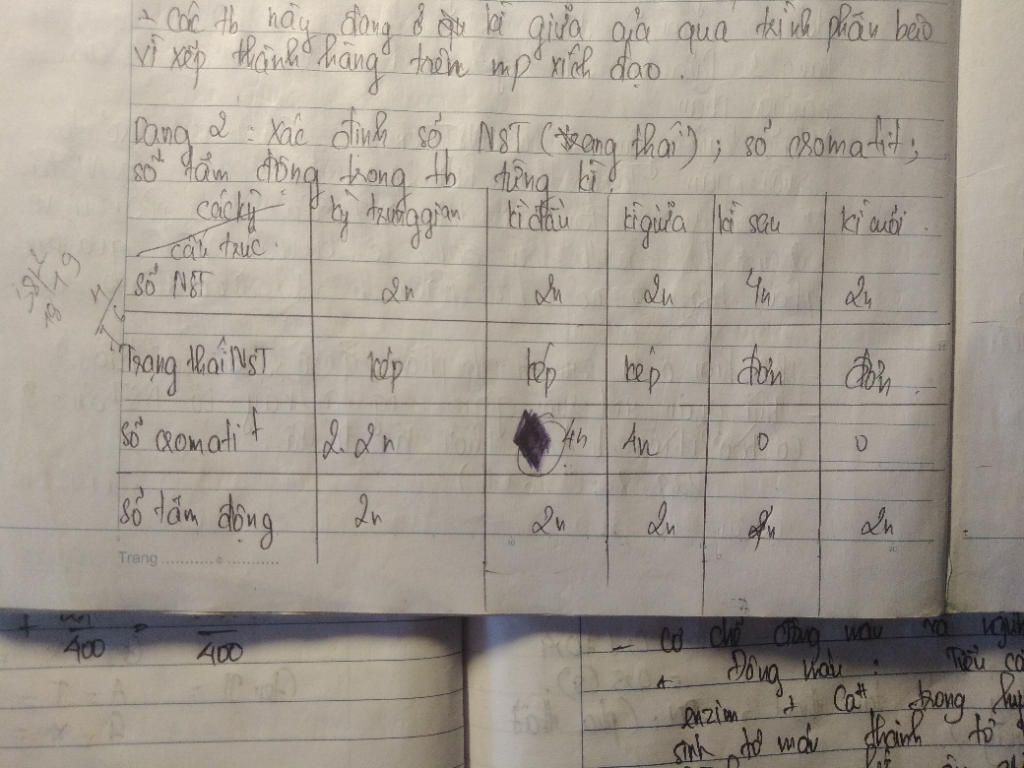 → các tb này đang ở kì giữa của quá trình phân bào
vì xếp thành hàng trên mp xích đạo.
Dạng 2: xác định số NST (trạng thái); số cromatit;
số tâm động trong tb từng kì.
các kỳ kỳ trung gian kì đầu kì giữa kì sau kì cuối
cấu trúc
số NST 2n 2n 2n 4n 2n
Trạng thái NST kép kép kép đơn đơn
số cromatit 2.2n 4n 4n 0 0
số tâm động 2n 2n 2n 2n
Trang
400 400
- cơ chế đông máu và
+ Đông máu: Tiểu
enzim + Ca trong
sinh tơ máu thành tơ